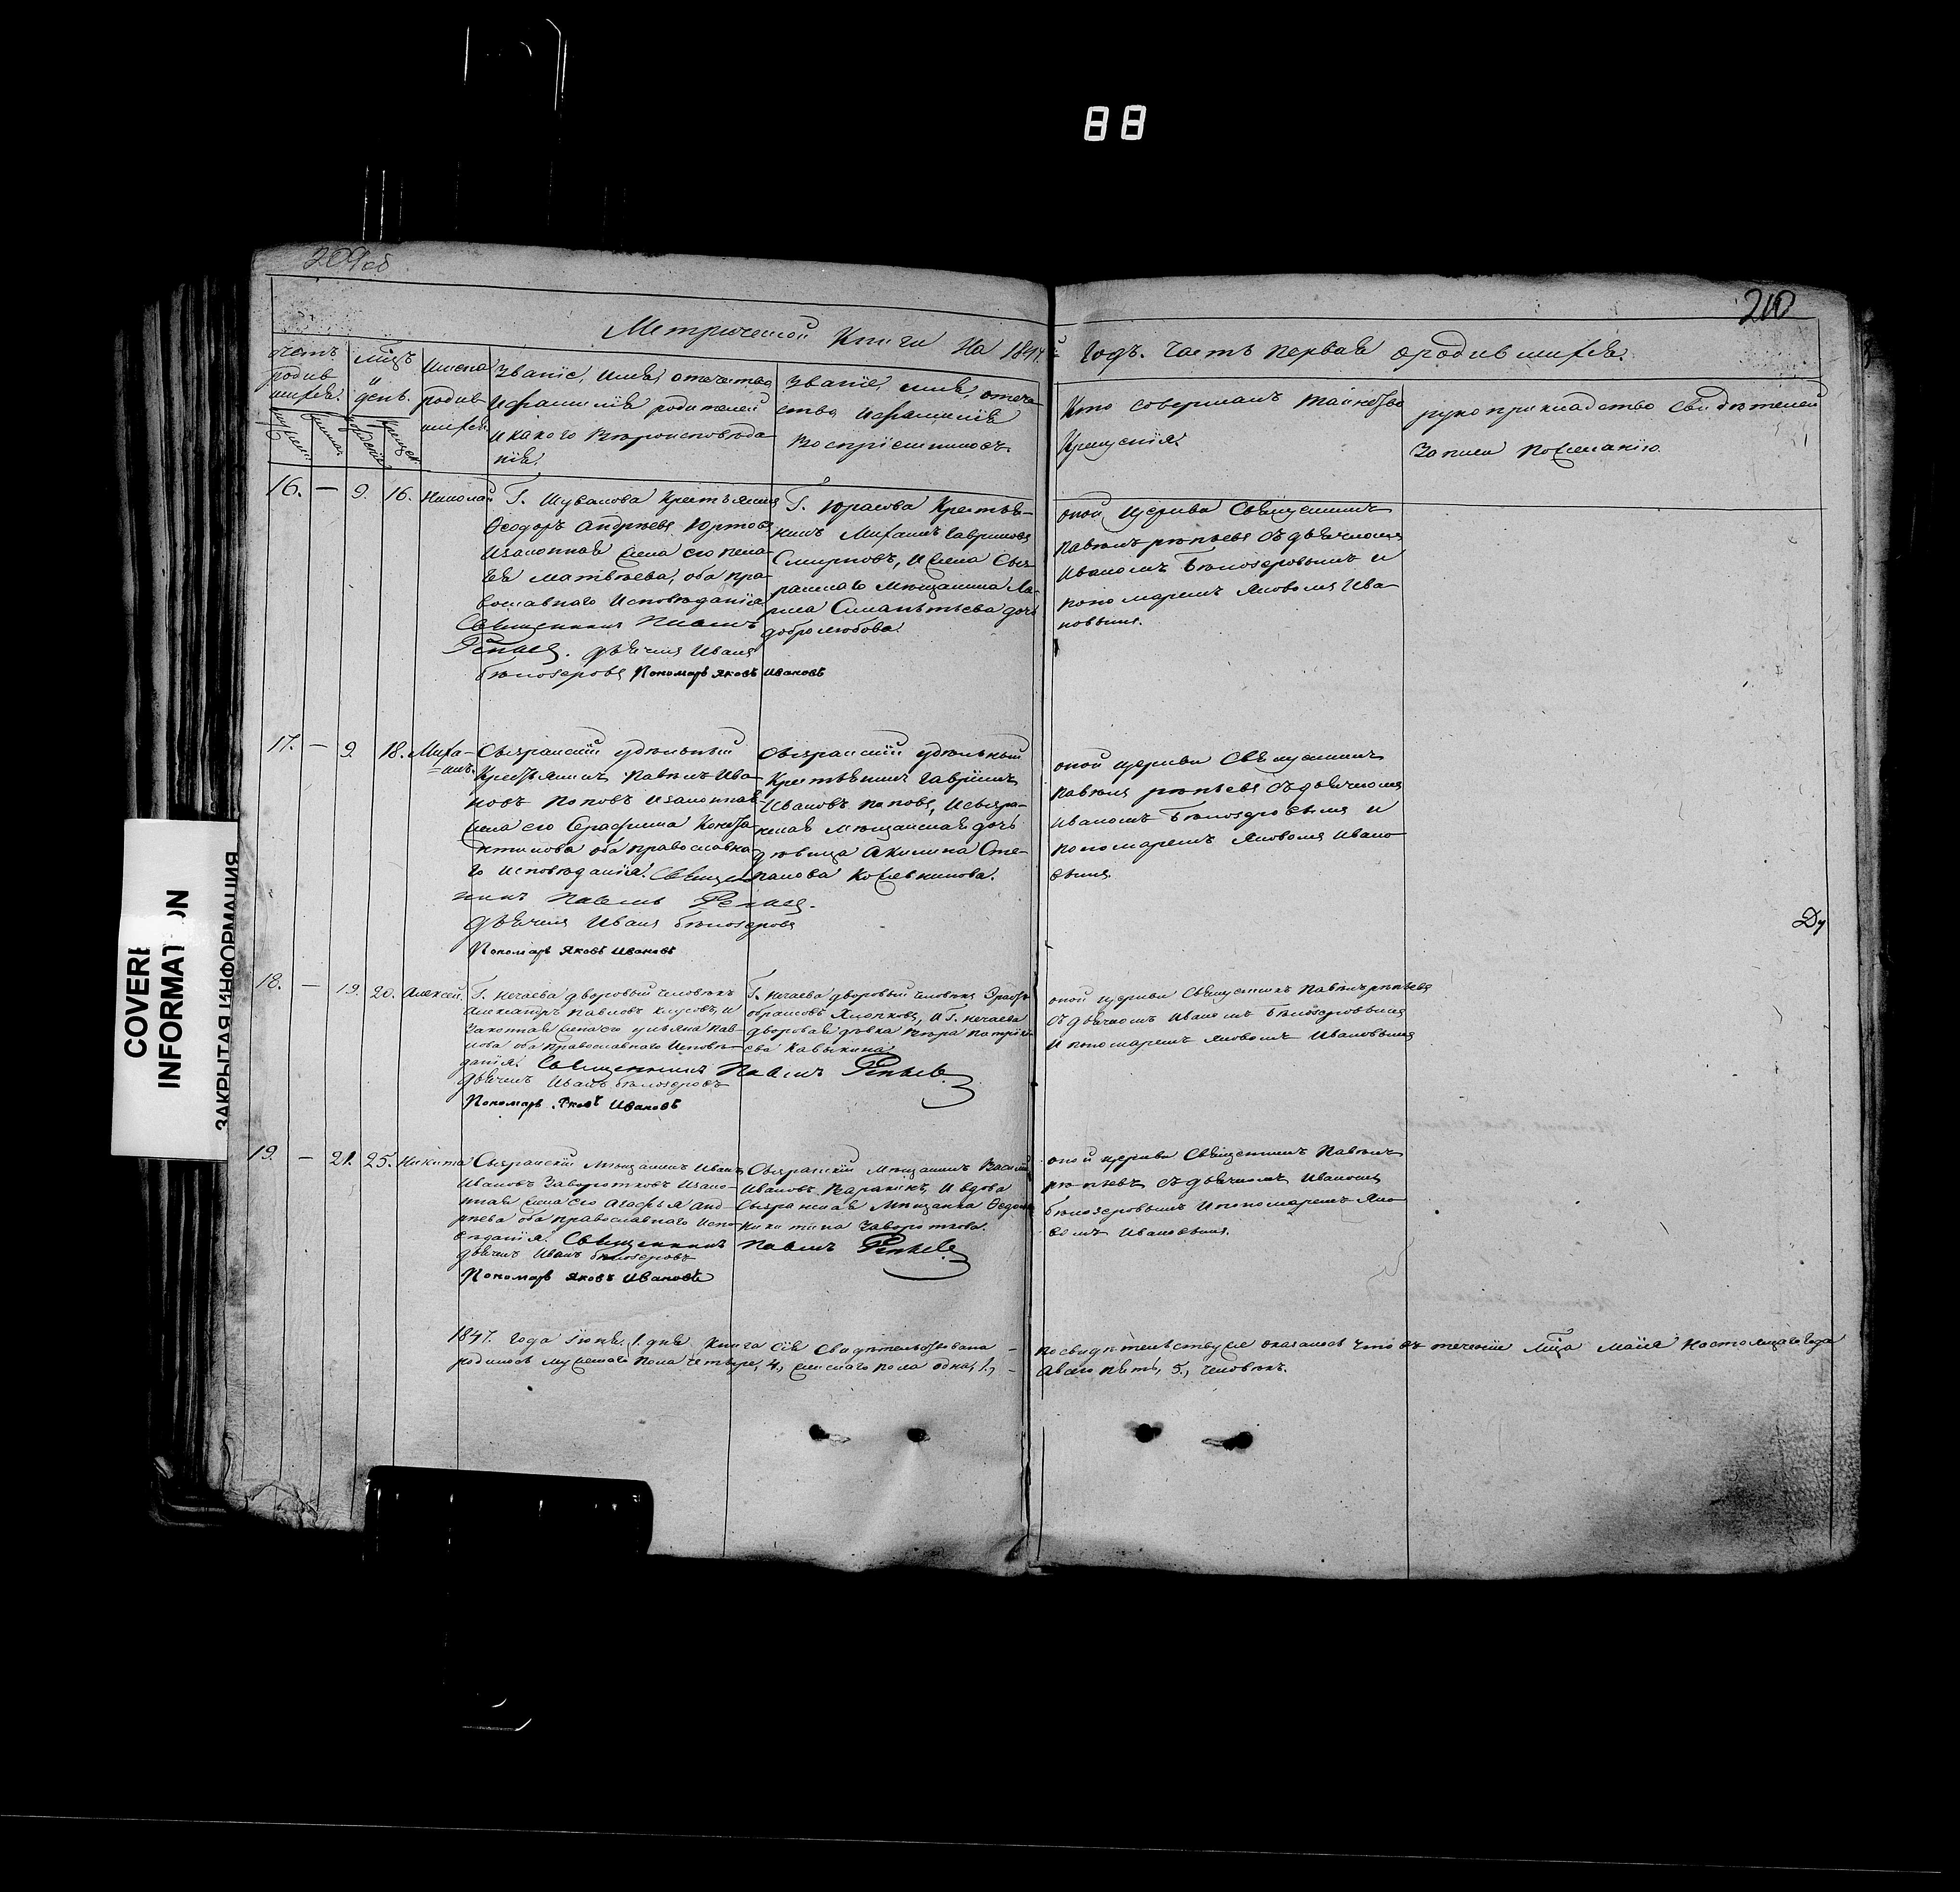 88
209 об
210
Метрической Книги На 1847й Годъ. Часть первая о родившихся.
Счетъ родившихся.
Мцъ и день.
Имена родившихся
Званіе, имя, отечество
и фамилія родителей
и какого вѣроисповѣда-
нія.
Званіе, имя, отече-
ство и фамилія
воспріемниковъ.
Кто совершалъ таинство
крещенія.
рукоприкладство свидѣтелей
записи по желанію.
16. — 9. 16. Николай
Г. Шувалова крестьянинъ
Ѳеодоръ Андреевъ
и законная жена его Пела-
гея Матвѣева, оба пра-
вославнаго исповѣданія
Священникъ Павелъ
Репьевъ. дьячекъ Иванъ
Бѣлозеровъ Пономарь Яковъ Ивановъ
Г. Юрасова крестья-
нинъ Михаилъ Гавриловъ
Смирновъ, и жена Сыз-
ранскаго мѣщанина
дочь
Добролюбова.
оной церкви Священникъ
Павелъ Репьевъ съ дьячкомъ
Иваномъ Бѣлозеровымъ и
пономаремъ Яковомъ Ива-
новымъ.
17. — 9. 18. Миха-
=илъ.
Сызранскій удѣльный
крестьянинъ Павелъ Ива-
новъ Поповъ и законная
жена его Серафима Конста-
нтинова оба православна-
го исповѣданія. Священ-
никъ Павелъ Репьевъ.
дьячекъ Иванъ Бѣлозеровъ
Пономарь Яковъ Ивановъ
Сызранскій удѣльный
крестьянинъ Гавріилъ
Ивановъ Поповъ, и сызра-
нская мѣщанская дочь
дѣвица Акилина Сте-
панова Кожевникова.
оной церкви Священникъ
Павелъ Репьевъ съ дьячкомъ
Иваномъ Бѣлозеровымъ и
пономаремъ Яковомъ Ивано-
вымъ
18. — 19. 20. Алексей.
Г. Нечаева дворовый человѣкъ
Александръ Павловъ и
законная жена его Ульяна Пав-
лова оба православнаго исповѣ-
данія. Священникъ Павелъ Репьевъ
дьячекъ Иванъ Бѣлозеровъ
Пономарь Яковъ Ивановъ
Г. Нечаева дворовый человѣкъ
и Г. Нечаева
дворовая дѣвка Вѣра Патрикі-
ева
оной церкви Священникъ Павелъ Репьевъ
съ дьячкомъ Иваномъ Бѣлозеровымъ
и пономаремъ Яковомъ Ивановымъ
19. — 21. 25. Никита
Сызранскій мѣщанинъ Иванъ
Ивановъ Заворотковъ и зако-
нная жена его Агафья Анд-
реева оба православнаго испо-
вѣданія. Священникъ Павелъ Репьевъ
дьячекъ Иванъ Бѣлозеровъ
Пономарь Яковъ Ивановъ
Сызранскій мѣщанинъ Василій
Ивановъ и вдова
Сызранская мѣщанка
Никитина Завороткова.
оной церкви Священникъ Павелъ
Репьевъ съ дьячкомъ Иваномъ
Бѣлозеровымъ и пономаремъ Яко-
вомъ Ивановымъ.
Ду
1847. года Іюня, 1. дня книга сія свидѣтельствована — по свидѣтельству же оказалось что въ теченіе мца Маія настоящаго года
родилось мужескаго пола четыре, 4., женскаго пола одна, 1., — а всего пять, 5., человѣкъ.
COVERE
INFORMATION
ЗАКРЫТАЯ ИНФОРМАЦИЯ